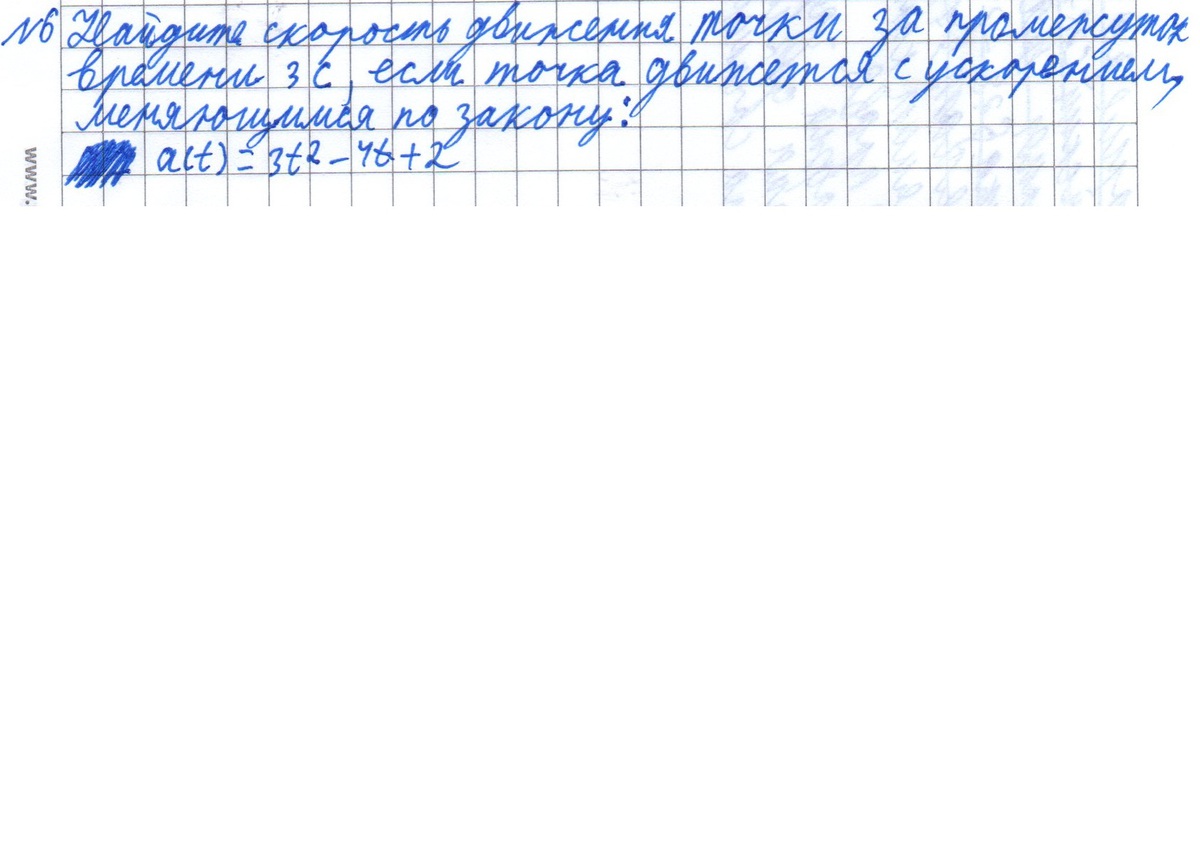 №6 Найдите скорость движения точки за промежуток
времени 3 с, если точка движется с ускорением,
меняющимся по закону:
a(t) = 3t² - 4t + 2
www.